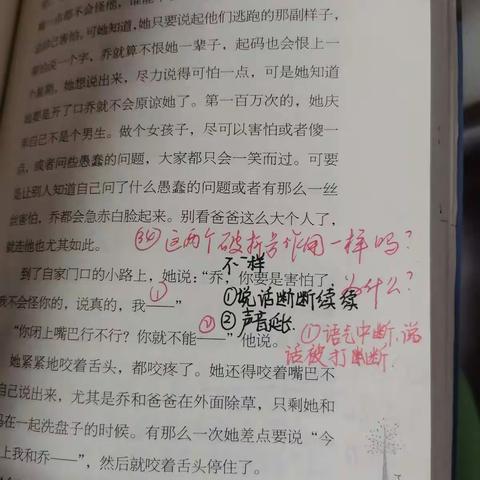 一点都不会怪他，
己害怕，可她知道，她只要说起他们逃跑的那副样子，
一个字，乔就算不恨她一辈子，起码也会恨上一
个星期。她想说出来，尽力说得可怕一点，可是她知道
要是开了口乔就不会原谅她了。第一百万次的，她庆
幸自己不是个男生。做个女孩子，尽可以害怕或者傻一
点，或者问些愚蠢的问题，大家都只会一笑而过。可要
是让别人知道自己问了什么愚蠢的问题或者有那么一丝
丝害怕，乔都会急赤白脸起来。别看爸爸这么大个人了，
就连他也尤其如此。
这两个破折号作用一样吗？
不一样
到了自家门口的小路上，她说：“乔，你要是害怕了，
为什么？
我不会怪你的，说真的，我——”
①
①说话断断续续
“你闭上嘴巴行不行？你就不能——”他说。
②
②声音延长
①语气中断，说
话被打断
她紧紧地咬着舌头，都咬疼了。她还得咬着嘴巴不
自己说出来，尤其是乔和爸爸在外面除草，只剩她和
妈在一起洗盘子的时候。有那么一次她差点要说“今
上我和乔——”，然后就咬着舌头停住了。